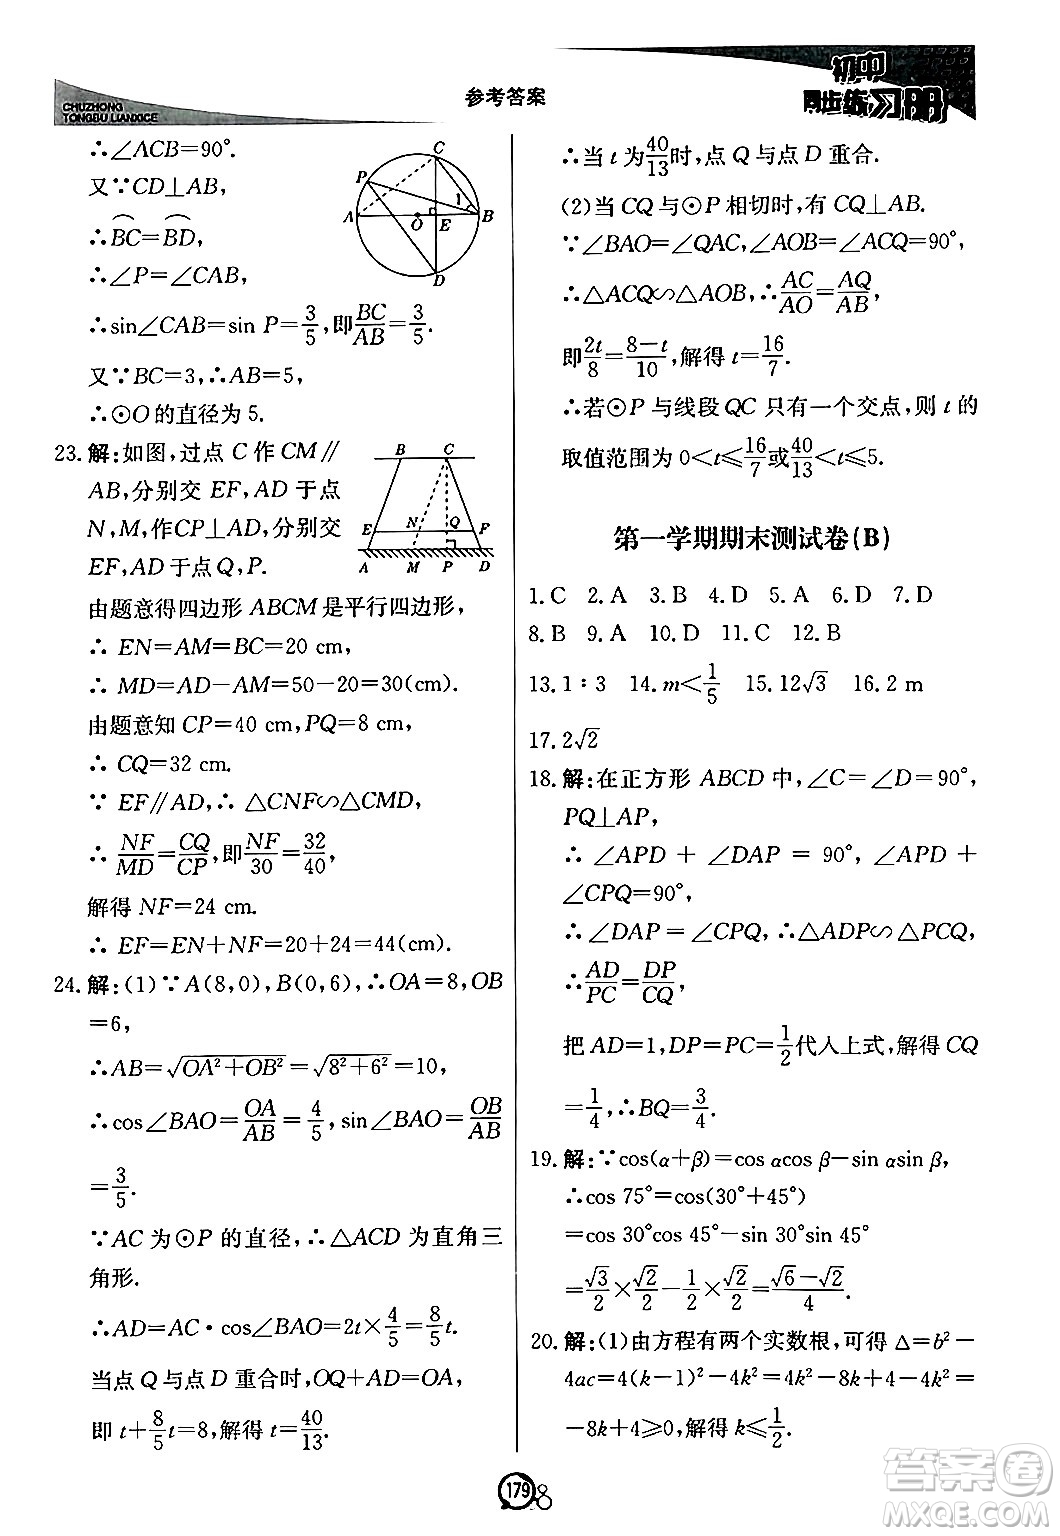 CHUZHONG
TONGBU LIANXICE
参考答案
初中
同步练习册
∴∠ACB=90°.
又∵CD⊥AB,
∴BC=BD,
∴∠P=∠CAB,
∴sin∠CAB=sin P=3/5,即BC/AB=3/5.
又∵BC=3,∴AB=5,
∴⊙O的直径为5.
C
P
1
A
O
E
B
D
23.解:如图,过点C作CM∥
AB,分别交EF,AD于点
N,M,作CP⊥AD,分别交
EF,AD于点Q,P.
B C
E N Q F
A M P D
由题意得四边形ABCM是平行四边形,
∴EN=AM=BC=20 cm,
∴MD=AD-AM=50-20=30(cm).
由题意知CP=40 cm,PQ=8 cm,
∴CQ=32 cm.
∵EF∥AD,∴△CNF∽△CMD,
∴NF/MD=CQ/CP,即NF/30=32/40,
解得NF=24 cm.
∴EF=EN+NF=20+24=44(cm).
24.解:(1)∵A(8,0),B(0,6),∴OA=8,OB
=6,
∴AB=√(OA²+OB²)=√(8²+6²)=10,
∴cos∠BAO=OA/AB=4/5,sin∠BAO=OB/AB
=3/5.
∵AC为⊙P的直径,∴△ACD为直角三
角形.
∴AD=AC·cos∠BAO=2t×4/5=8/5t.
当点Q与点D重合时,OQ+AD=OA,
即t+8/5t=8,解得t=40/13.
∴当t为40/13时,点Q与点D重合.
(2)当CQ与⊙P相切时,有CQ⊥AB.
∵∠BAO=∠QAC,∠AOB=∠ACQ=90°,
∴△ACQ∽△AOB,∴AC/AO=AQ/AB,
即2t/8=(8-t)/10,解得t=16/7.
∴若⊙P与线段QC只有一个交点,则t的
取值范围为0<t≤16/7或40/13<t≤5.
第一学期期末测试卷(B)
1.C 2.A 3.B 4.D 5.A 6.D 7.D
8.B 9.A 10.D 11.C 12.B
13.1∶3 14.m<1/5 15.12√3 16.2 m
17.2√2
18.解:在正方形ABCD中,∠C=∠D=90°,
PQ⊥AP,
∴∠APD+∠DAP=90°,∠APD+
∠CPQ=90°,
∴∠DAP=∠CPQ,∴△ADP∽△PCQ,
∴AD/PC=DP/CQ,
把AD=1,DP=PC=1/2代入上式,解得CQ
=1/4,∴BQ=3/4.
19.解:∵cos(α+β)=cos αcos β-sin αsin β,
∴cos 75°=cos(30°+45°)
=cos 30°cos 45°-sin 30°sin 45°
=√3/2×√2/2-1/2×√2/2=(√6-√2)/4.
20.解:(1)由方程有两个实数根,可得△=b²-
4ac=4(k-1)²-4k²=4k²-8k+4-4k²=
-8k+4≥0,解得k≤1/2.
179
8
答案圈
MXQE.COM